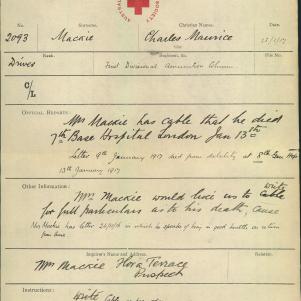 AUSTRALIAN SOCIETY
No. Surname. Christian Name.
2093 Mackie Charles Maurice
Rank. Regiment, &c. File No.
Driver First Divisional Ammunition Column
C/L
OFFICIAL REPORTS:
Mrs Mackie has cable that he died
7th Base Hospital London Jan 13th
Letter 9th January 1917 died from debility at 8th
13th January 1917
Other Information:
write
Mrs Mackie would like us to cable
for full particulars as to his death, cause
Mrs Mackie has letter in which he speaks of being in good health on return
from
Inquirer's Name and Address: Relation:
Mrs Mackie Flora Terrace
Prospect
Instructions:
Write